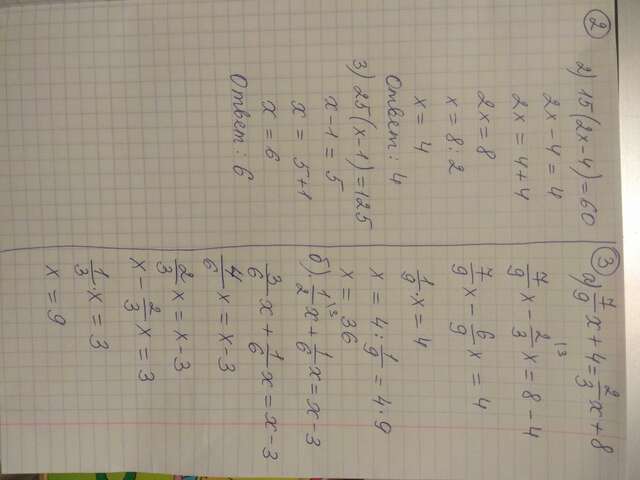 ②
2) 15(2x-4)=60
2x-4=4
2x=4+4
2x=8
x=8:2
x=4
Ответ: 4
3) 25(x-1)=125
x-1=5
x=5+1
x=6
Ответ: 6
③
а) 7/9 x+4=2/3 x+8
7/9 x-2/3 \3 x=8-4
7/9 x-6/9 x=4
1/9 x=4
x=4:1/9=4·9
x=36
б) 1/2 \3 x+1/6 x=x-3
3/6 x+1/6 x=x-3
4/6 x=x-3
2/3 x=x-3
x-2/3 x=3
1/3 x=3
x=9